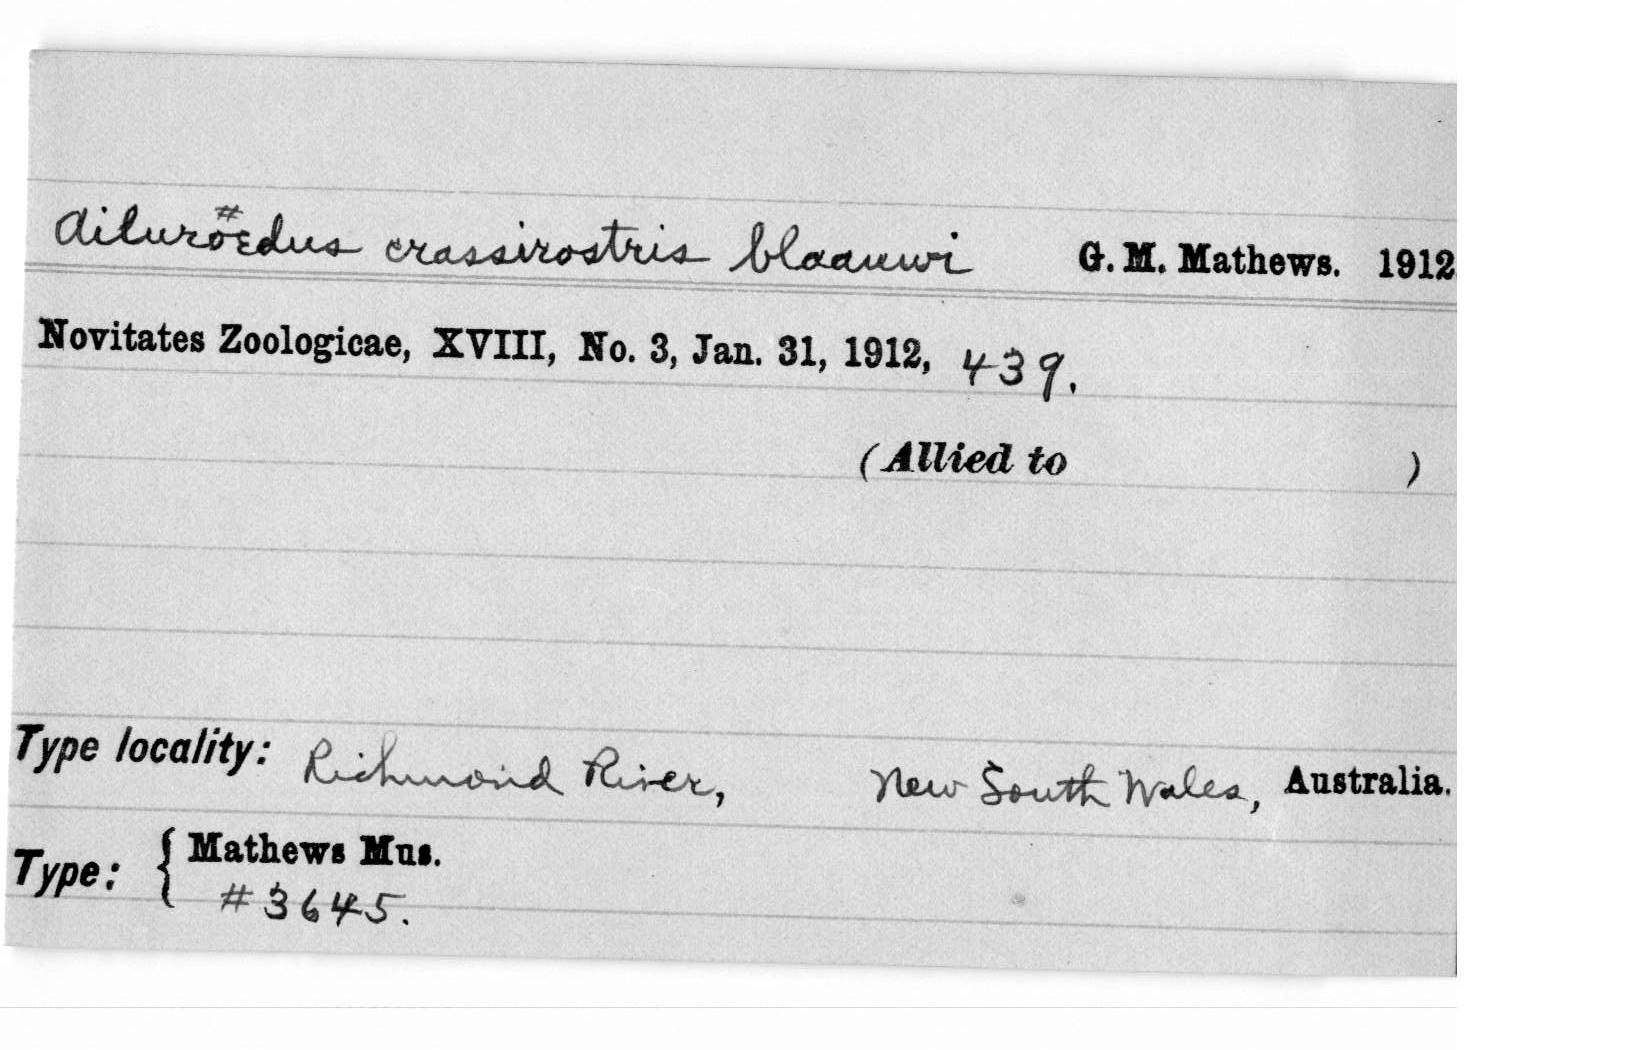 #
Ailuroedus crassirostris blaauwi G. M. Mathews. 1912
Novitates Zoologicae, XVIII, No. 3, Jan. 31, 1912, 439.
(Allied to )
Type locality: Richmond River, New South Wales, Australia.
Type: { Mathews Mus.
#3645.